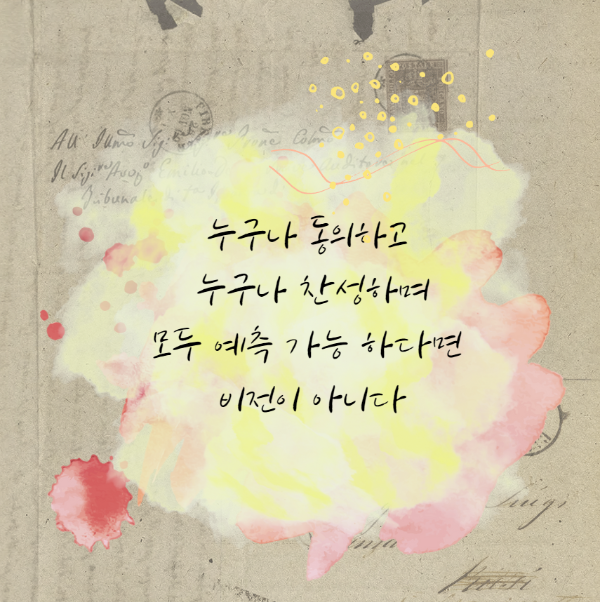 누구나 동의하고
누구나 찬성하며
모두 예측 가능 하다면
비전이 아니다